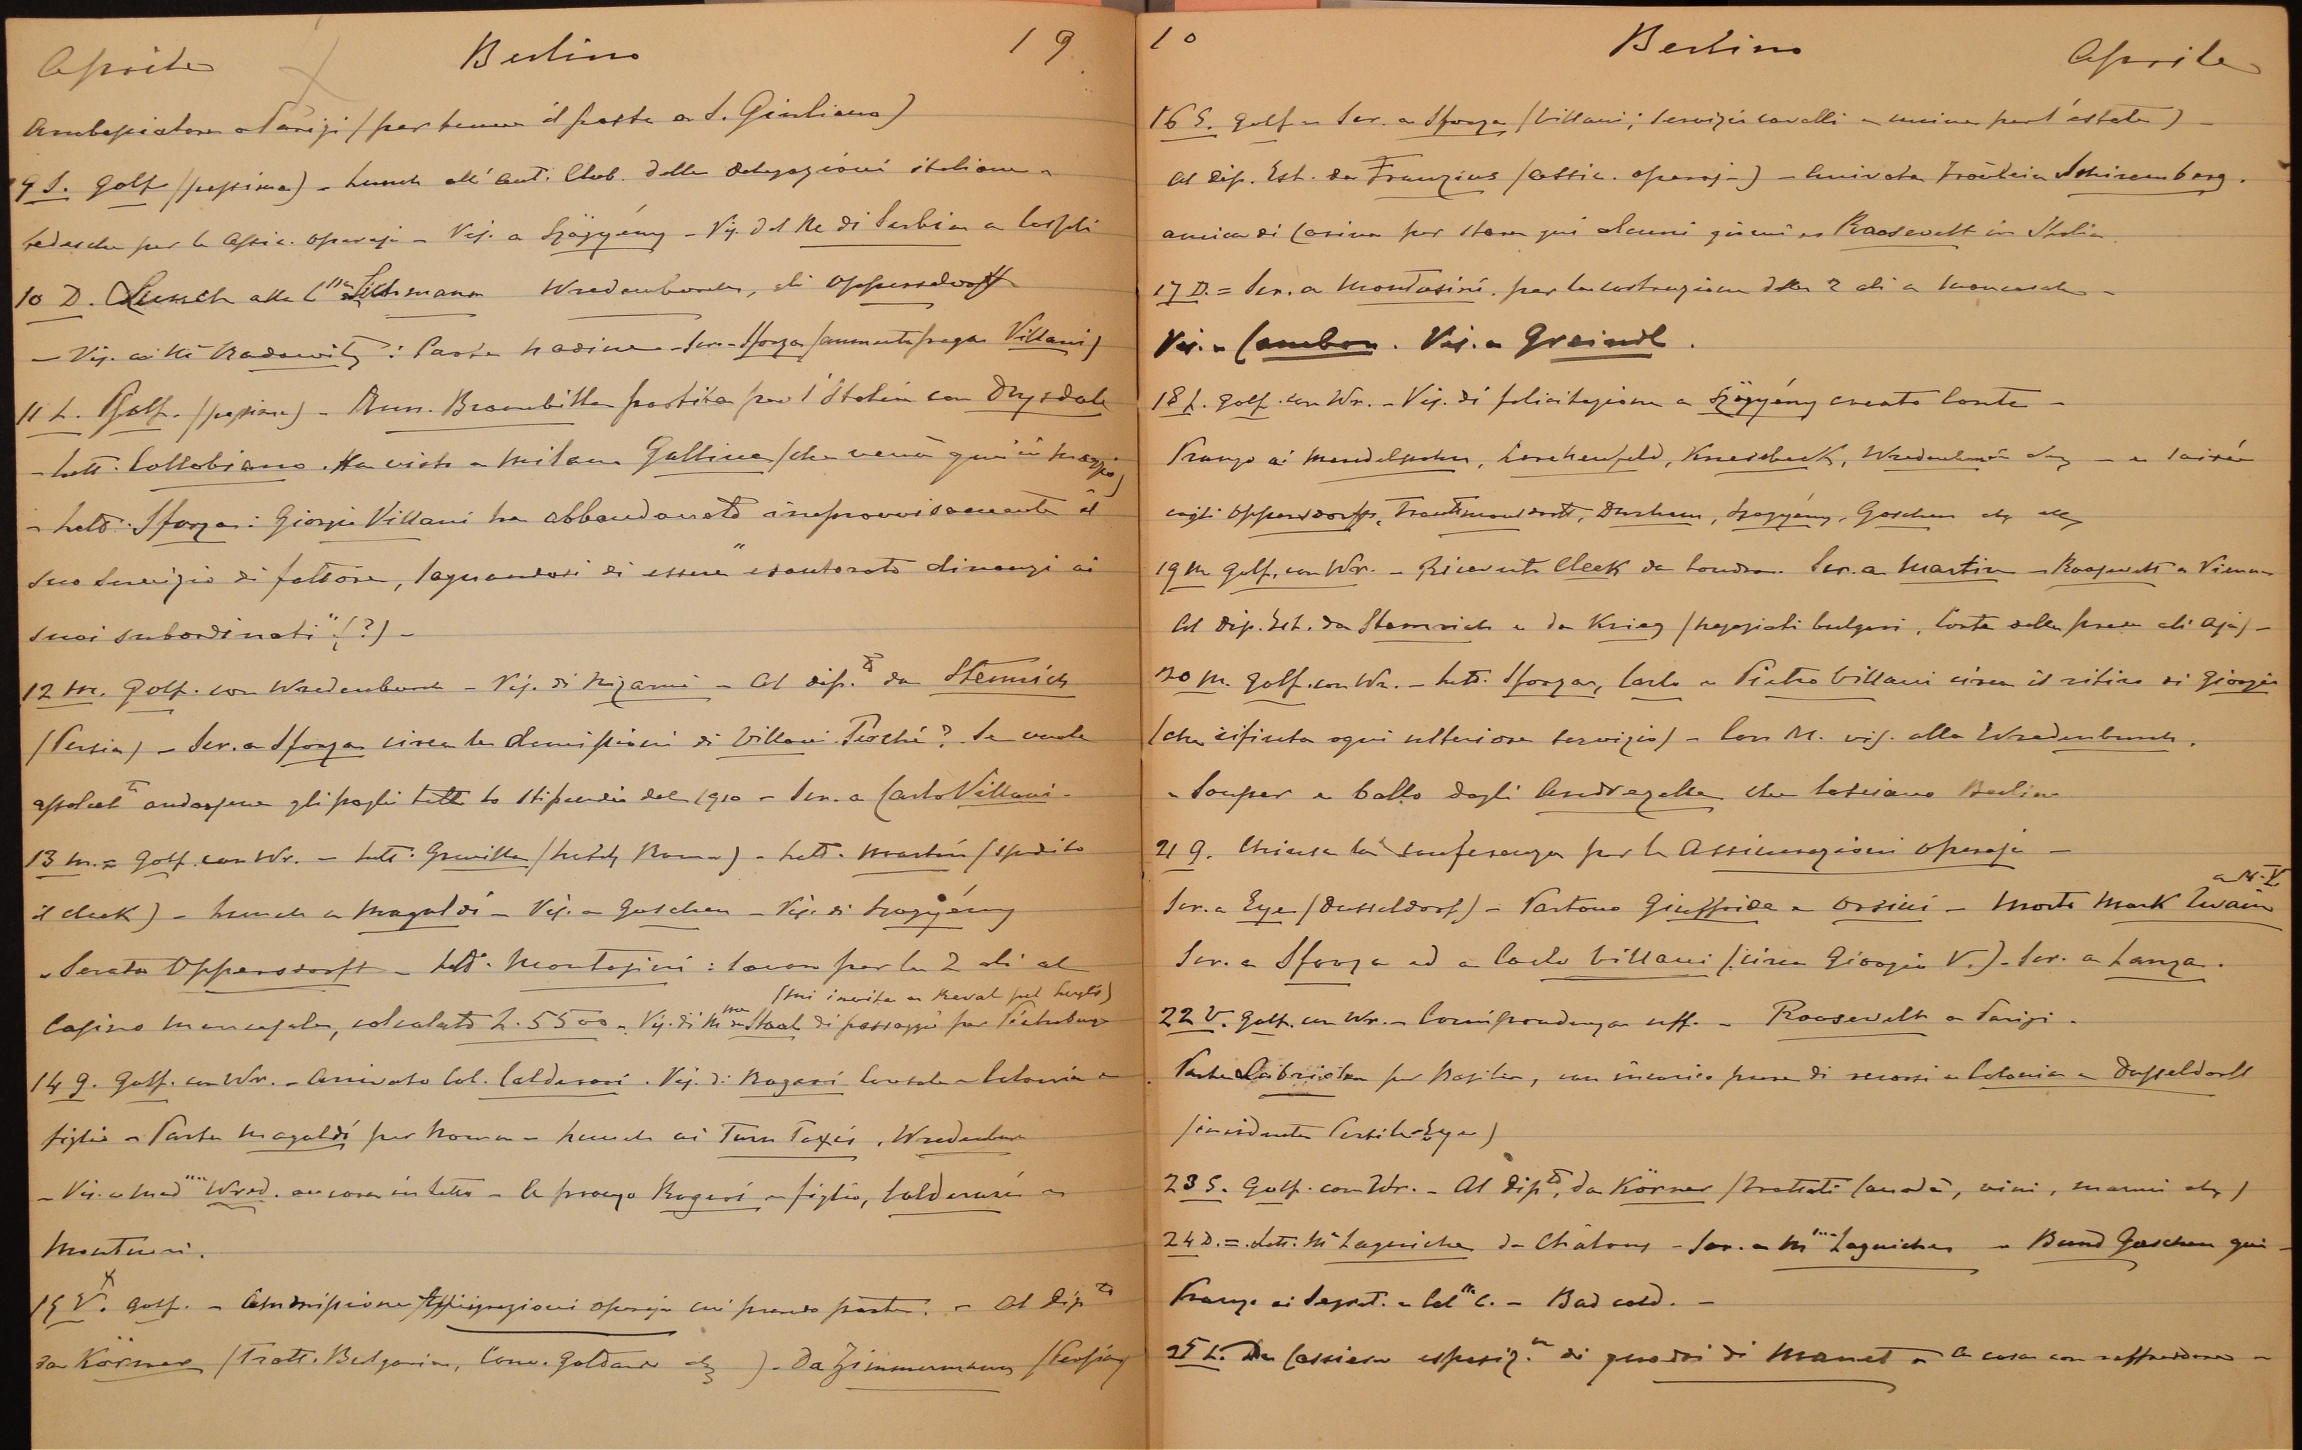 Aprile Berlino 19
Ambasciatore a Parigi (per tenere il posto a S. Giuliano)
9 S. Golf (pessimo) - Lunch all'Aut. Club. delle delegazioni italiana e
tedesca per le assic. operaje - Vis. a Szögyény - Vis. del Re di Serbia a
10 D. Lunch alla Wredenburch, gli Oppersdorff
- Vis. ai Radowitz: Parte Nadine - Scr. Sforza (aumento paga Villani)
11 L. Golf. (pessimo) - Ann. Brambilla partita per l'Italia con Drysdale
- Lett. Collobiano. Ha visto a Milano Gallina (che verrà qui in maggio)
- Lett. Sforza: Giorgio Villani ha abbandonato improvvisamente il
suo servizio di fattore, lagnandosi di essere "esautorato dinanzi ai
suoi subordinati" (?) -
12 M. Golf. con Wredenburch - Vis. di Nizami - Al dip.to da Stemrich
(Persia) - Scr. a Sforza circa le dimissioni di Villani. Perché? Se vuole
andarsene gli paghi tutto lo stipendio del 1910 - Scr. a Carlo Villani -
13 M. = Golf. con Wr. - Lett. Grenville ( Roma) - Lett. Martin (spedito
il check) - Lunch a Magaldi - Vis. a Goschen - Vis. di Szögyény
- Serata Oppersdorff - Lett. Montasini: lavori per le 2 ali al
(mi invita a Reval pel luglio)
Casino Moncasale, calcolato L. 5500 - Vis. di Mme de Staal di passaggio per Pietroburgo
14 G. Golf. con Wr. - Arrivato Col. Calderari. Vis. di Ragazzi Console a Colonia e
figlio - Parte Magaldi per Roma - Lunch ai Turn Taxis, Wredenbur
- Vis. a Mad Wred. ancora in letto - A pranzo Ragazzi e figlio, Calderari e
Montuori.
15 V. Golf. - Commissione Assicurazioni operaje cui prendo parte. - Al Dip.to
da Körner (Tratt. Bulgaria, Conv. Goldane etc) - Da Zimmermann (Persia)
10 Berlino Aprile
16 S. Golf - Scr. a Sforza (Villani; servizio cavalli e cucina per l'estate) -
Al dip. Est. da Franzius (assic. operaje) - Arrivata Fräulein Schiremberg.
amica di Carina per stare qui alcuni giorni - Roosevelt in Italia.
17 D. = Scr. a Montasini. per la costruzione delle 2 ali a Moncasale -
Vis. a Cambon. Vis. a Greindl.
18 L. Golf. con Wr. - Vis. di felicitazione a Szögyény creato Conte -
Pranzo ai Mendelssohn, Lerchenfeld, Knesebeck, Wredenburch etc - e soirée
cogli Oppersdorff, Trautmansdorff, Durham, Szögyény, Goschen etc etc
19 M Golf. con Wr. - Ricevuto Cleek da Londra. Scr. a Martin - Roosevelt a Vienna
Al dip. Est. da Stemrich e da Krieg (negoziati bulgari, Corte delle prese all'Aja) -
20 M. Golf. con Wr. - Lett. Sforza, Carlo e Pietro Villani circa il ritiro di Giorgio
(che rifiuta ogni ulteriore servizio) - Con M. vis. alla Wredenburch.
- Souper e ballo dagli che lasciano Berlino
21 G. Chiusa la conferenza per le Assicurazioni operaje -
Scr. a Eye (Dusseldorf) - Partono Giuffrida e Orsini - Morto Mark Twain a N.Y.
Scr. a Sforza ed a Carlo Villani (circa Giorgio V.) - Scr. a Lanza.
22 V. Golf. con Wr. - Corrispondenza uff. - Roosevelt a Parigi.
Parte per Basilea, con incarico pure di recarsi a Colonia e Dusseldorf
(incidente Persile-Eye)
23 S. Golf. con Wr. - Al Dip.to, da Körner (trattati Canadà, vini, marmi etc)
24 D. = Lett. Me Laguiche da Châlons - Scr. a Mme Laguiche - Goschen qui -
Pranzo ai Segret. e Col. C. - Bad cold. -
25 L. Da Cassirer esposiz.ne di quadri di Manet - A casa con raffreddore -